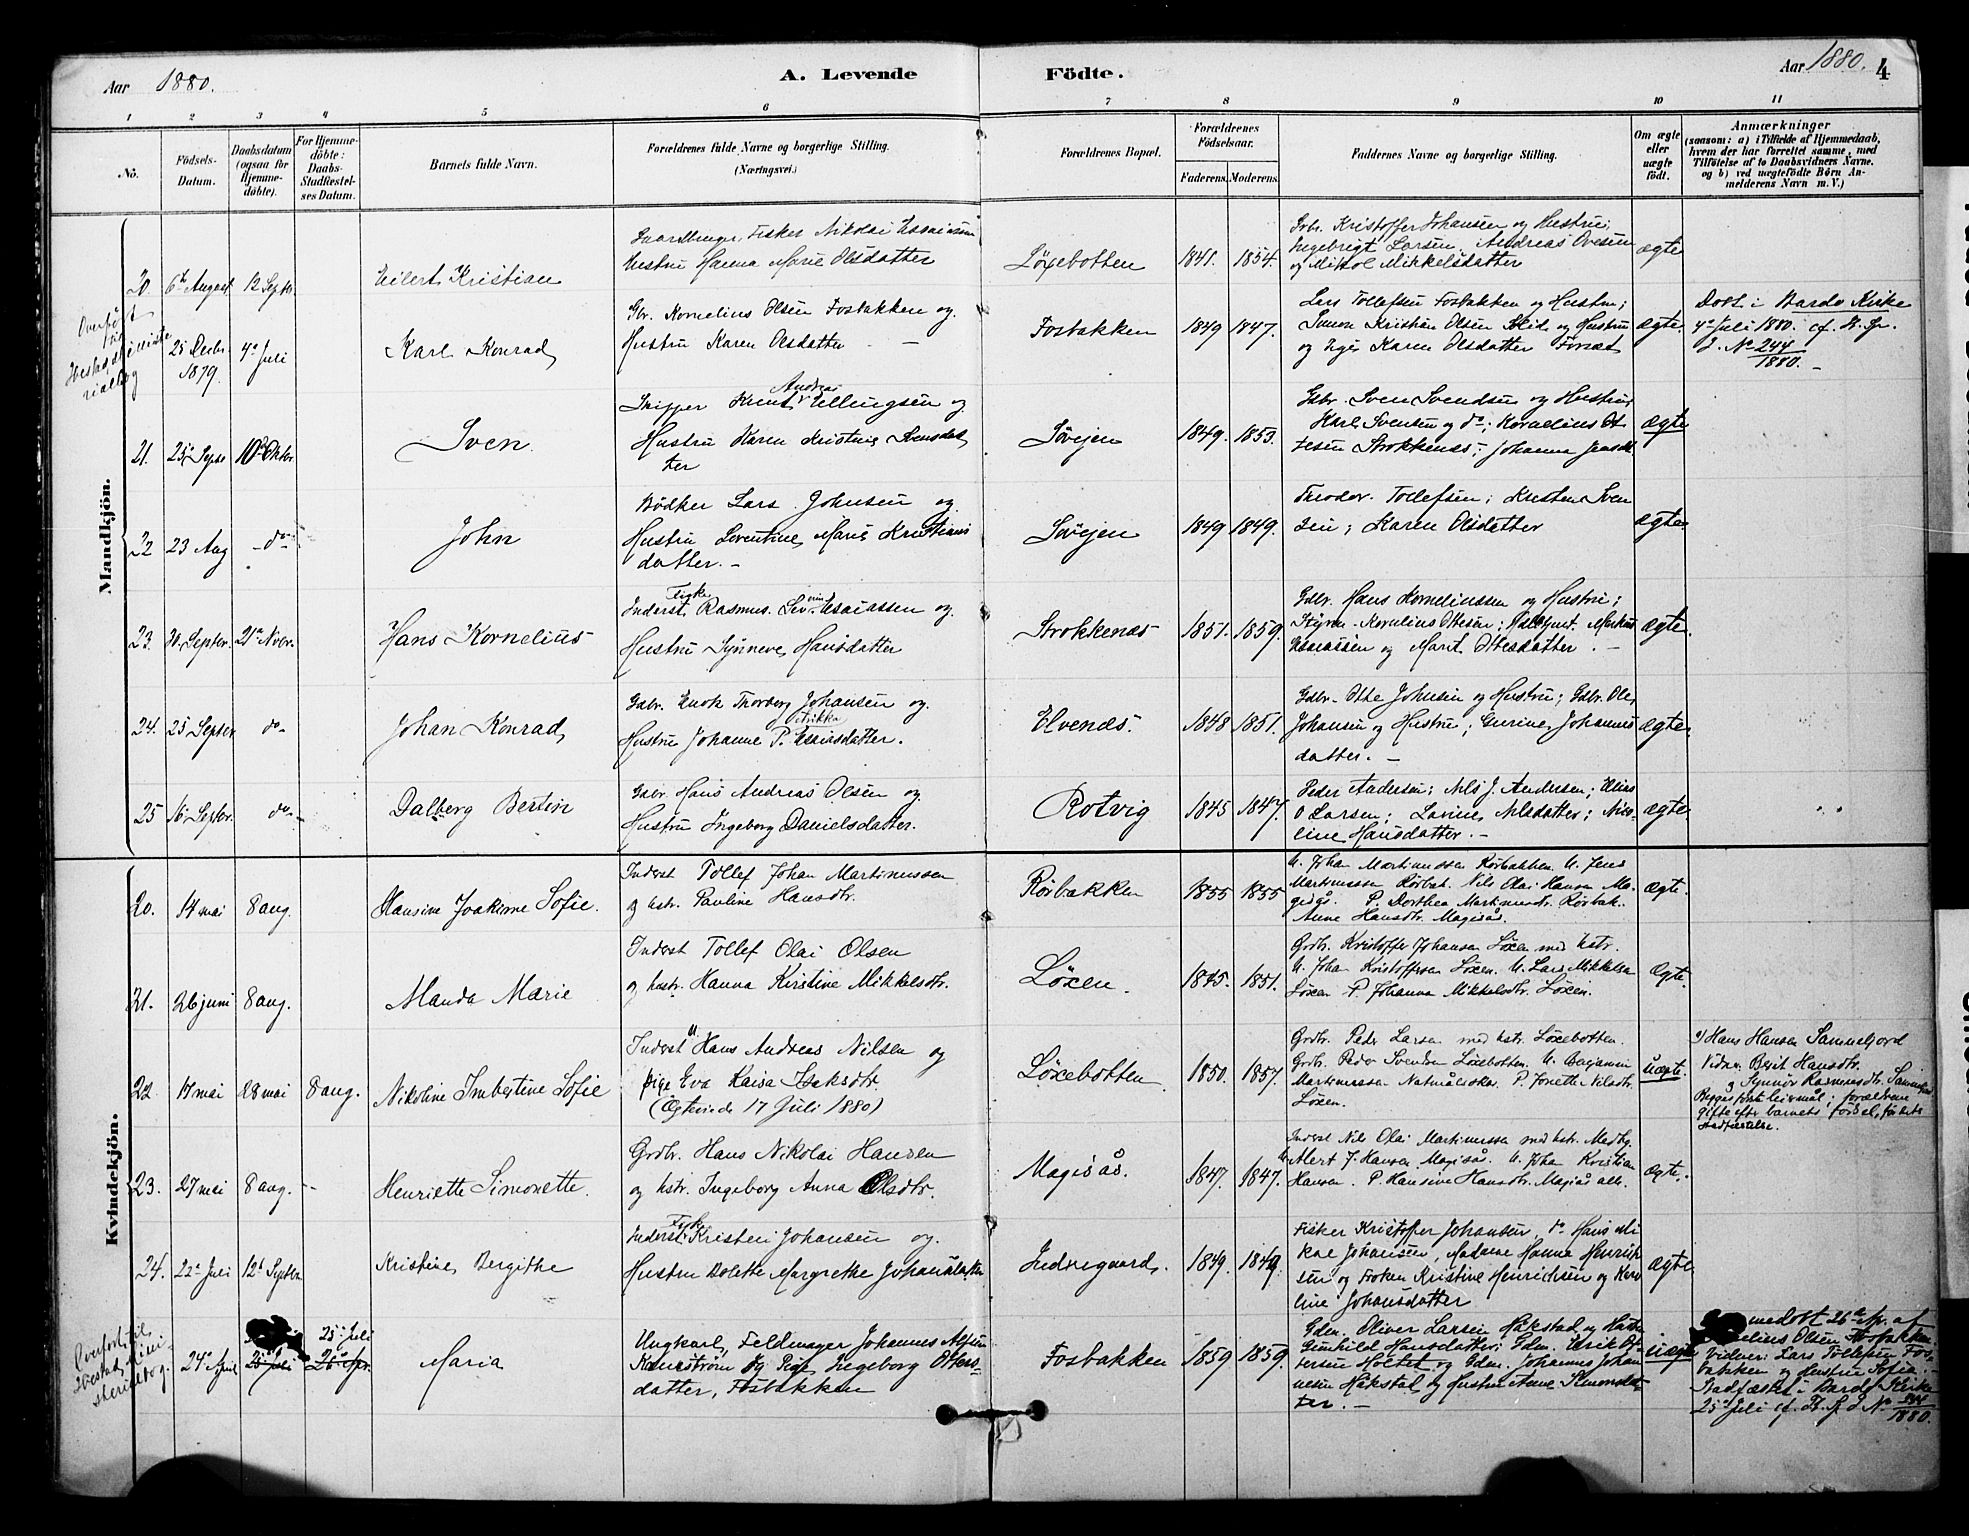 Aar 1880. A. Levende Födte. Aar 1880. 4
1 2 3 4 5 6 7 8 9 10 11
No.
Födsels-
Datum.
Daabsdatum
(ogsaa for
Hjemme-
döbte).
For Hjemme-
döbte:
Daabs-
Stadfæstel-
ses Datum.
Barnets fulde Navn.
Forældrenes fulde Navne og borgerlige Stilling.
(Næringsvei.)
Forældrenes Bopæl.
Forældrenes
Födselsaar.
Faderens. Moderens.
Faddernes Navne og borgerlige Stilling.
Om ægte
eller
uægte
födt.
Anmærkninger
(saasom: a) i Tilfælde af Hjemmedaab,
hvem der har forrettet samme, med
Tilföielse af to Daabsvidners Navne.
og b) ved uægtefödte Börn An-
melderens Navn m. V.)
Mandkjön.
20. 6te August 12 Septr. Eilert Kristian
Fisker Nikolai Esaiassen
Hustru Hanna Marie Olsdatter
Löxebotten 1841. 1854.
Gbr. Kristoffer Johansen og Hustru;
Ingebrigt Larsen, Andreas Ovesen
og Mikkelsdatter
ægte
Overført
fra
25 Decbr.
1879. 4de Juli Karl Konrad
Gbr. Kornelius Olsen Fosbakken og
Hustru Karen Olsdatter -
Fosbakken 1849 1847.
Lars Tollefsen Fosbakken og Hustru;
Simon Kristian Olsen og Hustru
og Pige Karen Olsdatter
ægte
Døbt i Bardo Kirke
4de Juli 1880. cf.
J. No 244
1880.
21. 25 Septr 10de Oktbr. Sven
Skipper Knut Andreas Ellingsen og
Hustru Karen Kristine Svensdat
ter
Søvejen 1849. 1853.
Gdbr. Sven Svendsen og Hustru;
Karl Svensen og do; Kornelius Ot
tesen Strokkenæs; Johanna
ægte
22 23 Aug -do- John
Bødker Lars Johnsen og
Hustru Loventine Marie Kristians
datter. -
Søvejen 1849 1849.
Theodor Tollefsen; Kristen Sven
sen; Karen Olsdatter
ægte
23. 30 Septbr. 21de Novbr. Hans Kornelius
Fisker
Inderst Rasmus Esaiassen og
Hustru Synneve Hansdatter
Strokkenæs 1851. 1859.
Gdbr. Hans Korneliussen og Hustru;
Kornelius Ottesen; Markus
Esaiassen og Marit Ottesdatter. -
ægte
24. 25 Septbr. do- Johan Konrad
Gdbr. Enok Thorberg Johansen og
Hustru Johanne P. Esaiasdatter.
Elvenæs. 1848 1851.
Gdbr. Otte Johnsen og Hustru; Gdbr. Ole
Johansen og Hustru; Gurine Johannes
datter. -
ægte
25 16 Septbr. do- Dalberg Bertin
Gdbr. Hans Andreas Olsen og
Hustru Ingeborg Danielsdatter.
Rotvig 1845 1847.
Peder Andersen; Nils J. Andersen; Elias
O Larsen; Lovine Nilsdatter; Nico-
line Hansdatter. -
ægte
Kvindekjön.
20. 14 mai 8 aug. Hansine Joakime Sofie.
Inderst Tollef Johan Martinussen
og hstr. Pauline Hansdtr.
Rörbakken 1855 1855
U. Johan Martinussen Rörbakken U. Jens
Martinussen Rörbak. Nils Olai Hansen Ma-
gisås. P. Dorthea Martinusdtr. Rörbak.
Anne Hansdtr. Magisås.
ægte.
21. 26 juni 8 aug. Manda Marie
Inderst Tollef Olai Olsen
og hustr. Hanna Kirstine Mikkelsdtr.
Löxen. 1845. 1851.
Grdbr. Kristoffer Johansen Löxen med hstr.
U. Johan Kristoffersen Löxen. U. Lars Mikkelsen
Löxen P. Johanna Mikkelsdtr. Löxen.
Ægte.
22. 17 mai 28 mai 8 aug. Nikoline Imbertine Sofie
Inderst Hans Andreas Nilsen og
pige Eva Kaisa Isaksdtr.
(Ægteviede 17 Juli 1880)
Löxebotten 1850. 1857.
Grdbr. Peder Larsen med hstr. Löxebotten.
Grdb. Peder Svendsen Löxebotten. U. Benjamin
Martinussen P. Jonette Nilsdtr.
Löxen.
uægte.
Hans Hansen Sammelfjord
Vidner Berit Hansdtr.
og Synnöv Rasmusdtr.
Begges første leiermål; forældrene
gifte efter barnets fødsel, før dets
Stadfæstelse.
23. 27 mai 8 aug. - Henriette Simonette.
Grdbr. Hans Nikolai Hansen
og hstr. Ingeborg Anna Olsdtr.
Magisås. 1847. 1847.
Inderst Nils Olai Martinussen med hstr.
J. Hansen Magisås. U. Johan Kristian
Hansen. P. Hansine Hansdtr. Magisås alle.
ægte.
24. 22de Juli 12te Septbr. Kristine Bergithe
Fisker
Inderst Kristen Johansen og
Hustru Dolette Margrethe Johansdatter
Indregaard. 1849. 1849
Fisker Kristoffer Johansen, do Hans Mi
kal Johansen, Madame Hanna Henrik
sen og Frøken Kristine Henrichsen og Karo
line Johansdatter
ægte
24de April 25 Juli
25de Juli
26de Apr. Maria
Ungkarl, Feldmager Johannes
og Pige Ingeborg Otters-
datter, Fosbakken
Fosbakken 1859 1859.
Gdm. Oliver Larsen Håkstad og Hustru
Gunhild Hansdatter; Gdm. Ulrik Ot
tersen Holtet og Gdm. Johannes Johan
nesen Håkstad og Hustru Anne Simonsdat-
ter. -
uægte
Hjemmedøbt 26de Apr. af
Kornelius Olsen Fosbakken.
Vidner: Lars Tollefsen Fos-
bakken og Hustru Sofia
Stadfæstet i Bardo Kirke
25de Juli cf. J. No
1880.